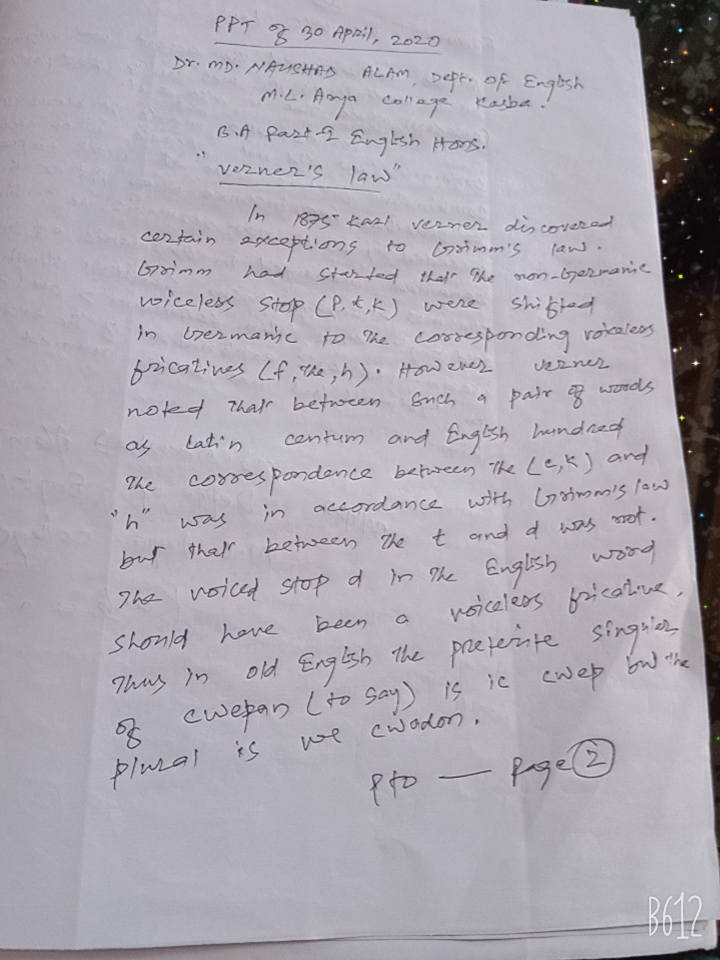 PPT of 30 April, 2020
Dr. MD. NAUSHAD ALAM, Dept. of English
M.L. Arya College Kasba.
B.A Part-2 English Hons.
"Verner's law"
In 1875 Karl Verner discovered
certain exceptions to Grimm's law.
Grimm had started that the non-Germanic
voiceless stop (P, t, k) were shifted
in Germanic to the corresponding voiceless
fricatives (f, the, h). However Verner
noted that between such a pair of words
as Latin centum and English hundred
the correspondence between the (c, k) and
"h" was in accordance with Grimm's law
but that between the t and d was not.
The voiced stop d in the English word
should have been a voiceless fricative,
Thus in old English the preterite singuler
of cwepan (to say) is ic cwep but the
plural is we cwadon.
Pto — Page 2
B612